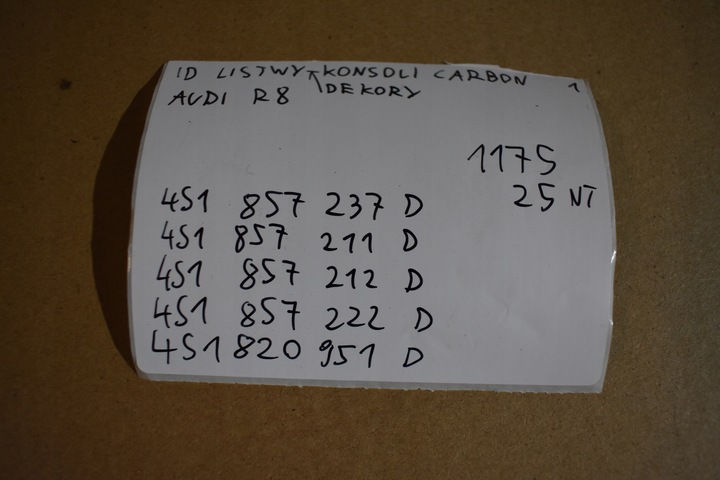 ID LISTWY KONSOLI CARBON 1
DEKORY
AUDI R8
1175
25 NT
4S1 857 237 D
4S1 857 211 D
4S1 857 212 D
4S1 857 222 D
4S1 820 951 D